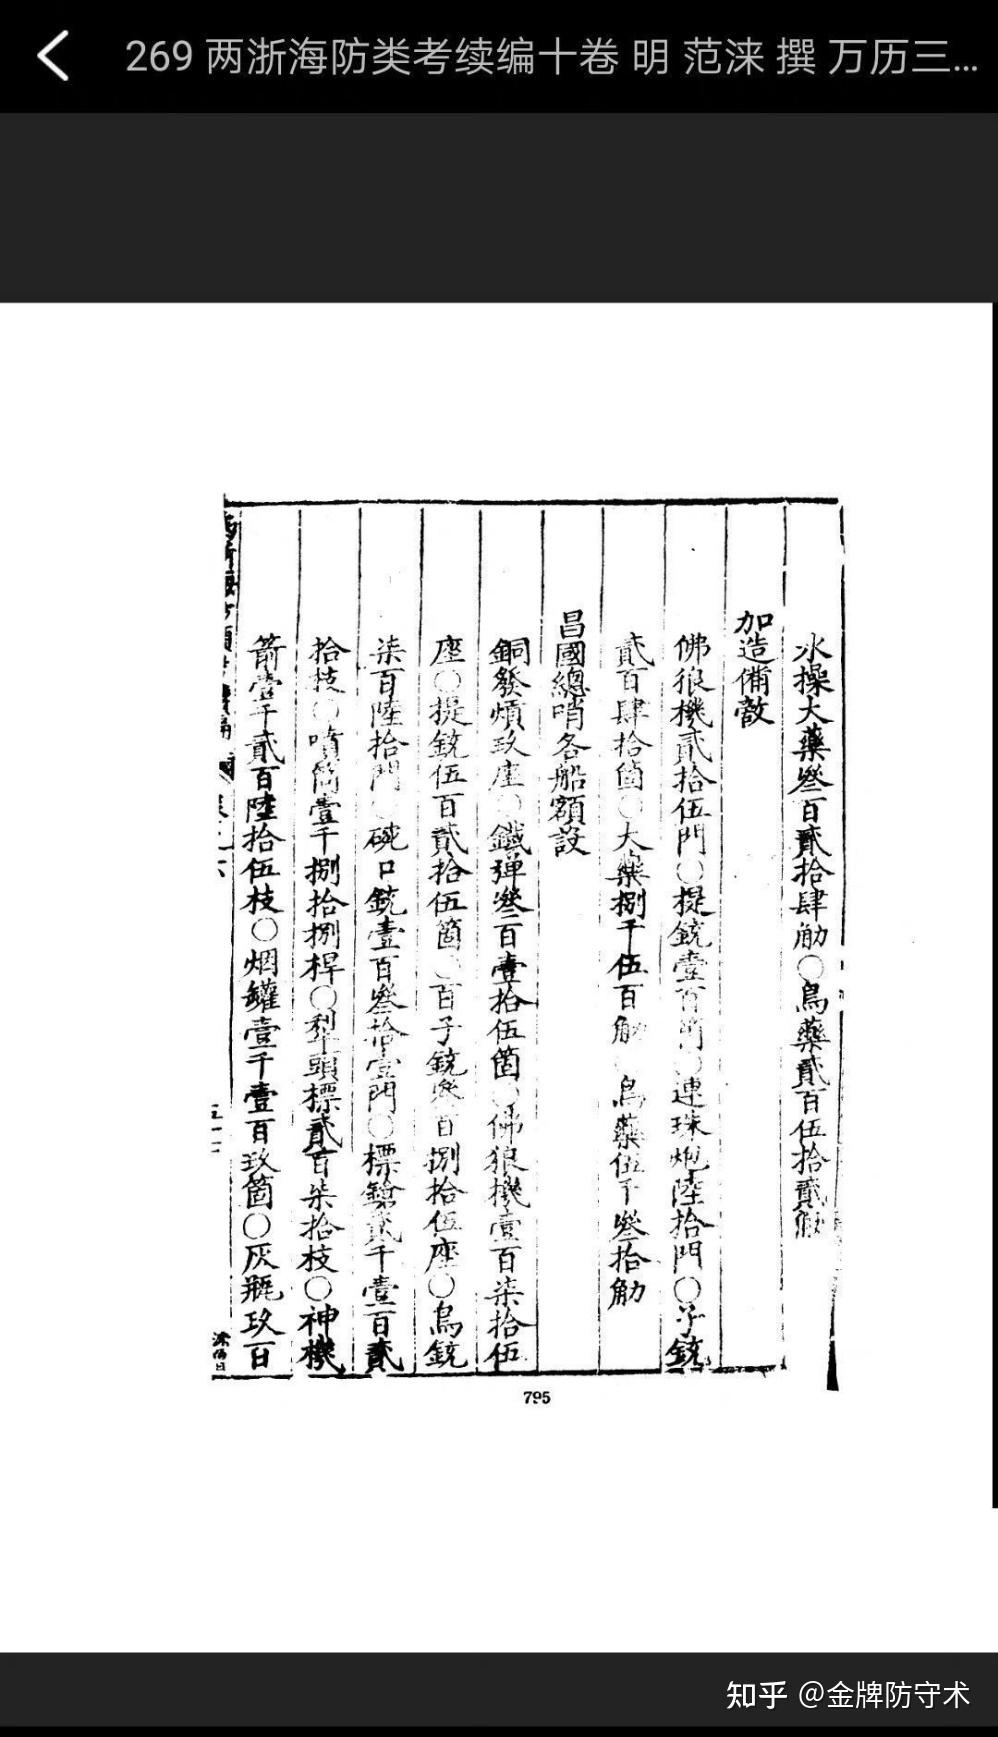 269 两浙海防类考续编十卷 明 范涞 撰 万历三...
水操大藥叄百貳拾肆觔〇鳥藥貳百伍拾貳觔
加造備敵
佛狼機貳拾伍門〇提銃壹百箇〇連珠炮陸拾門〇子銃
貳百肆拾箇〇大藥捌千伍百觔〇鳥藥伍千叄拾觔
昌國總哨各船額設
銅發熕玖座〇鐵弹叄百壹拾伍箇〇佛狼機壹百柒拾伍
座〇提銃伍百貳拾伍箇〇百子銃叄百捌拾伍座〇鳥銃
柒百陸拾門〇碗口銃壹百叄拾壹門〇標鎗貳千壹百貳
拾枝〇噴筒壹千捌拾捌桿〇犁頭標貳百柒拾枝〇神機
箭壹千貳百陸拾伍枝〇烟罐壹千壹百玖箇〇灰瓶玖百
795
知乎 @金牌防守术